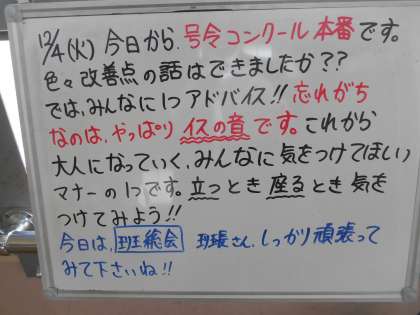 12/4(火) 今日から、号令コンクール本番です。
色々改善点の話はできましたか??
では、みんなに1つアドバイス!! 忘れがち
なのは、やっぱりイスの音です。これから
大人になっていく、みんなに気をつけてほしい
マナーの1つです。立つとき座るとき気を
つけてみよう!!
今日は、班総会 班長さん、しっかり頑張って
みて下さいね!!